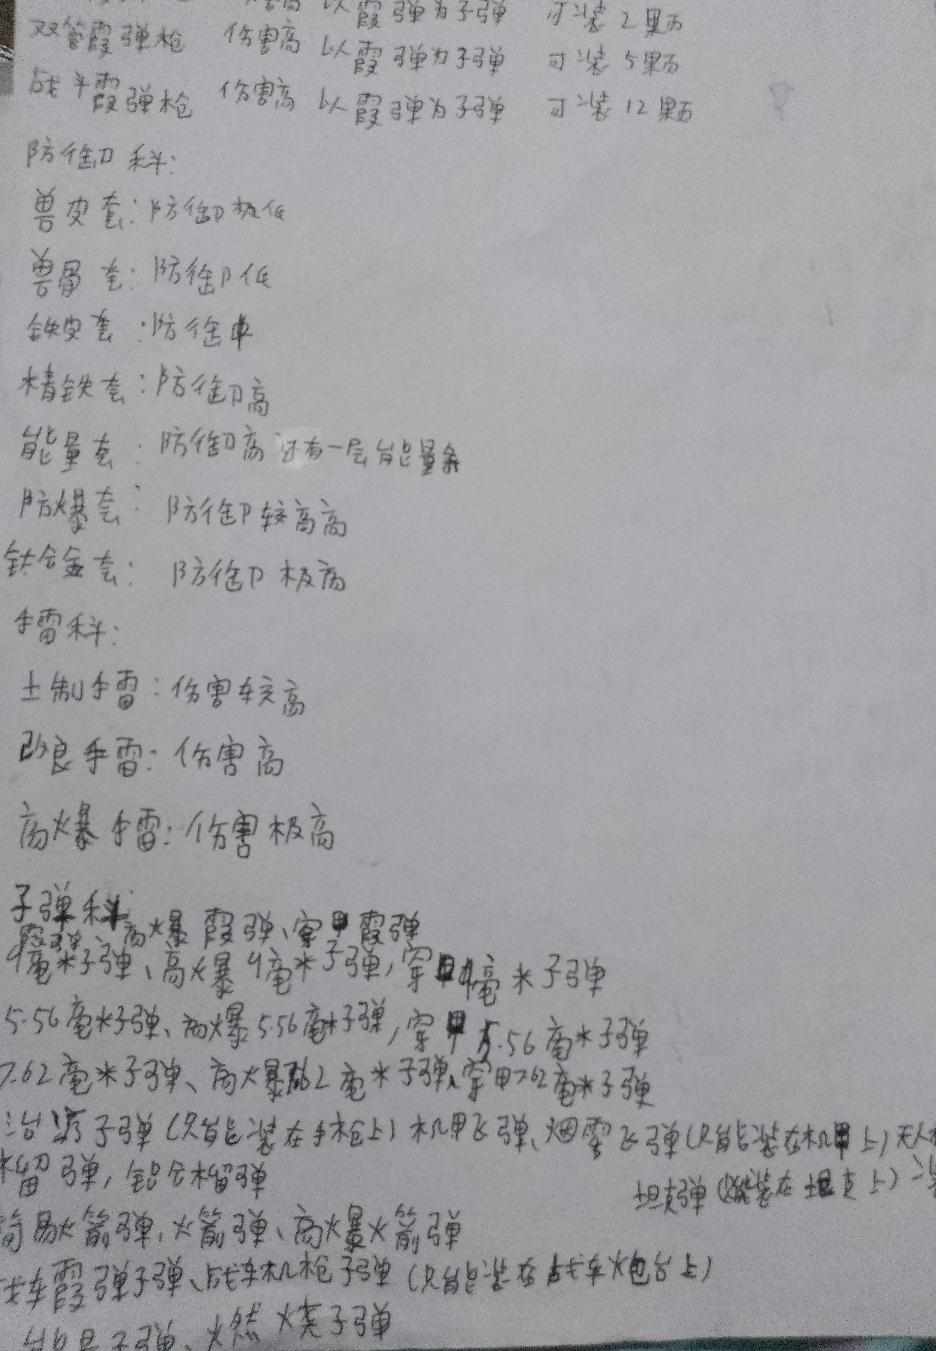 伤害高 以霞弹为子弹 可装2颗
双管霞弹枪 伤害高 以霞弹为子弹 可装5颗
战斗霞弹枪 伤害高 以霞弹为子弹 可装12颗
防御科:
兽皮套:防御极低
兽骨套:防御低
铁皮套:防御中
精铁套:防御高
能量套:防御高还有一层能量条
防爆套:防御较高高
钛合金套:防御极高
手雷科:
土制手雷:伤害较高
改良手雷:伤害高
高爆手雷:伤害极高
子弹科:
霞弹、高爆霞弹、穿甲霞弹
9毫米子弹、高爆9毫米子弹,穿甲9毫米子弹
5.56毫米子弹、高爆5.56毫米子弹,穿甲5.56毫米子弹
7.62毫米子弹、高爆7.62毫米子弹、穿甲7.62毫米子弹
治疗子弹(只能装在手枪上)机甲飞弹、烟雾飞弹(只能装在机甲上)无人
榴弹,铝合榴弹 坦克弹(只能装在坦克上)
简易火箭弹、火箭弹、高爆火箭弹
战车霞弹子弹、战车机枪子弹(只能装在战车炮台上)
能量子弹、燃烧子弹